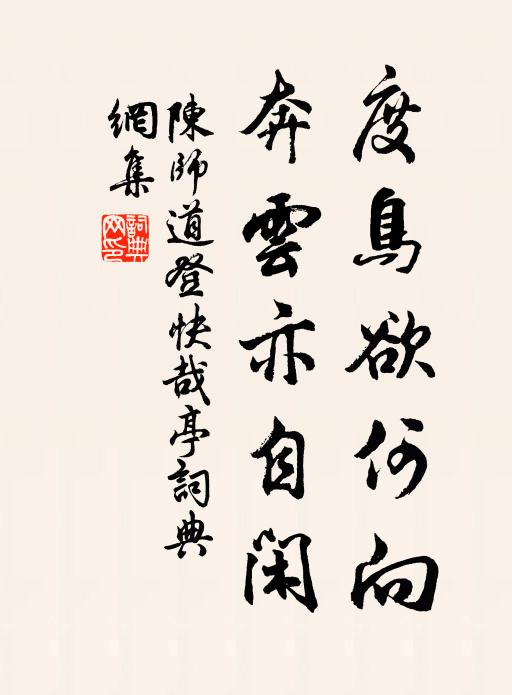 度鳥欲何向
奔雲亦自閑
陳師道登快哉亭詞典
網集
詞典網印